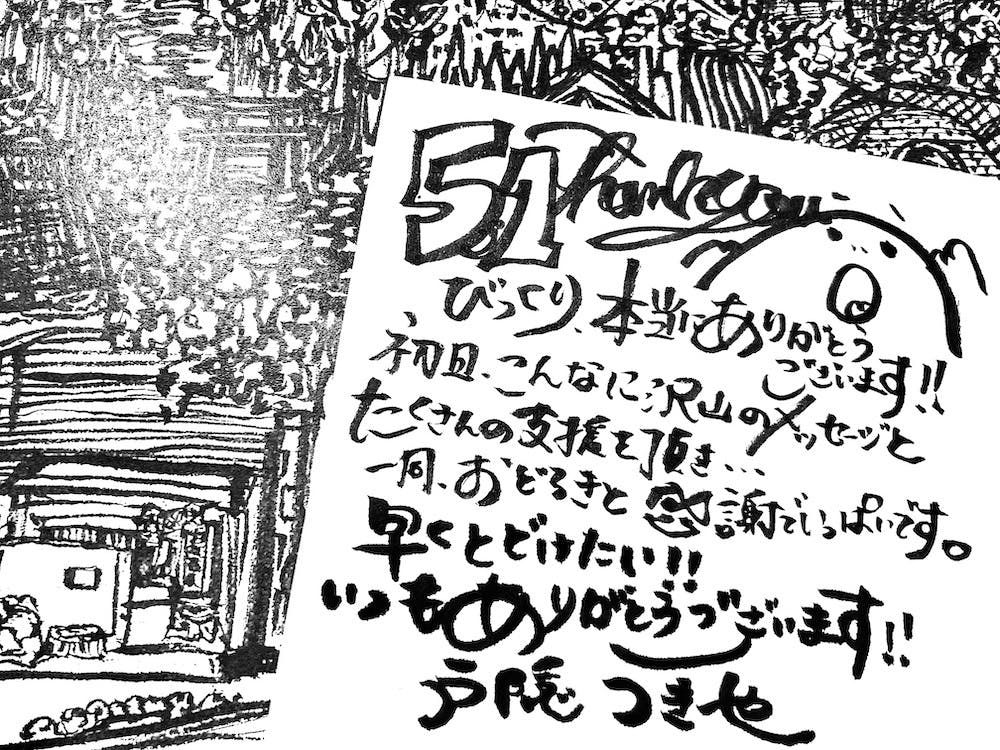 5.1 Thankyou
びっくり、本当にありがとう
ございます!!
初日、こんなに沢山のメッセージと
たくさんの支援を頂き...
一同、おどろきと感謝でいっぱいです。
早くとどけたい!!
いつもありがとうございます!!
戸隠 つきや